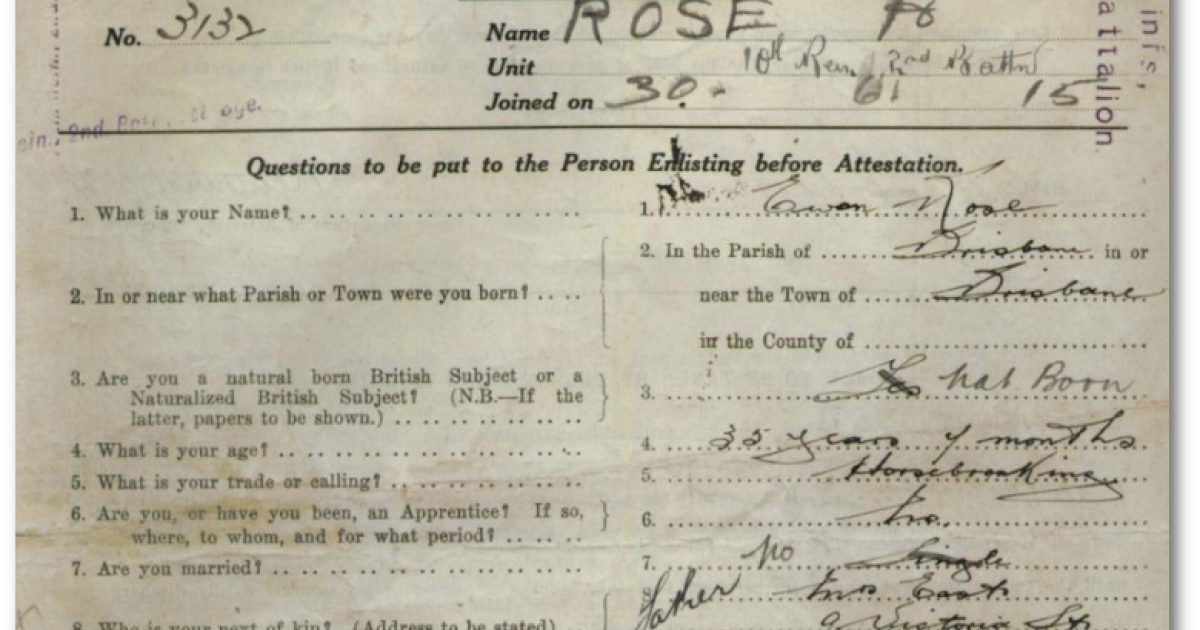 No. 3132 Name ROSE
Unit 10th Rein. 2nd Battn
Joined on 30. 15
2nd
Battalion
Questions to be put to the Person Enlisting before Attestation.
1. What is your Name? 1. Ewen Rose
2. In or near what Parish or Town were you born? 2. In the Parish of Brisbane in or
near the Town of Brisbane
in the County of
3. Are you a natural born British Subject or a
Naturalized British Subject? (N.B.—If the
latter, papers to be shown.) 3. Yes Nat Born
4. What is your age? 4. 35 years 7 months
5. What is your trade or calling? 5. Horsebreaking
6. Are you, or have you been, an Apprentice? If so,
where, to whom, and for what period? 6. No.
7. Are you married? 7. No Single
8. Who is your next of kin? (Address to be stated) 8. Father Mrs
Victoria St